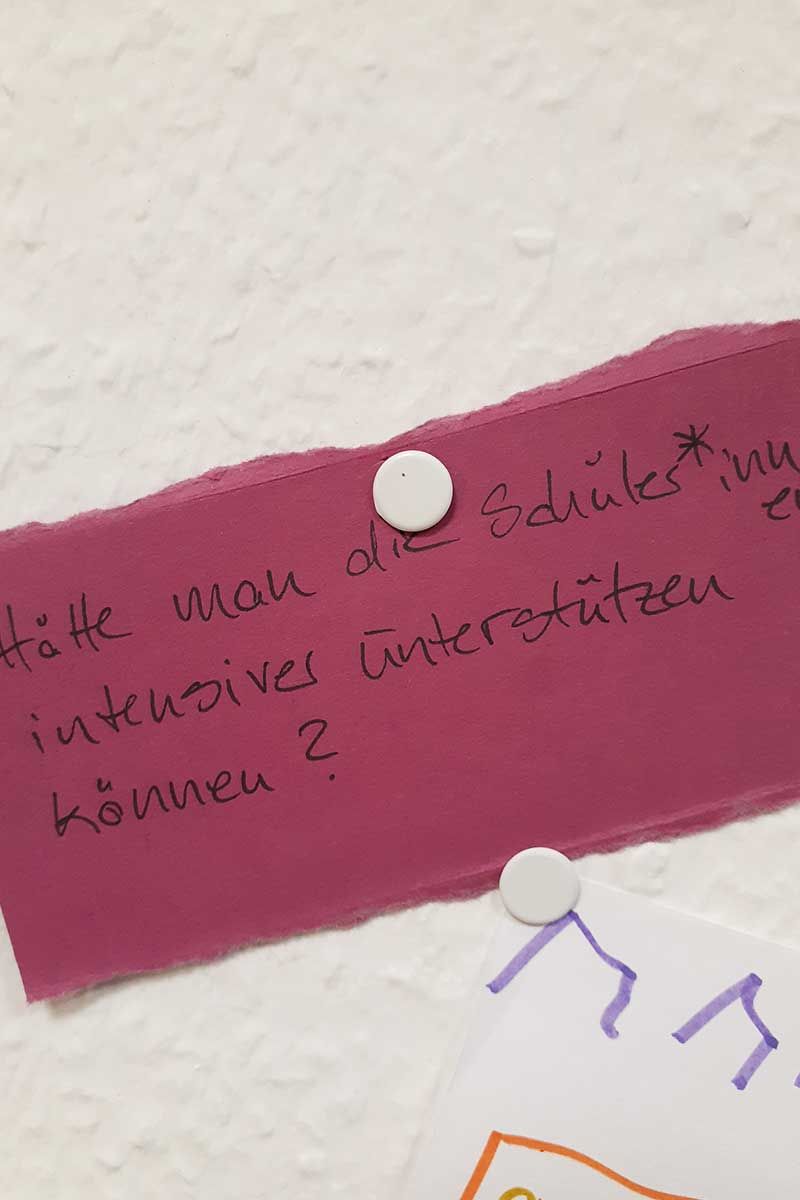 Hätte man die Schüler*innen
intensiver unterstützen
können?